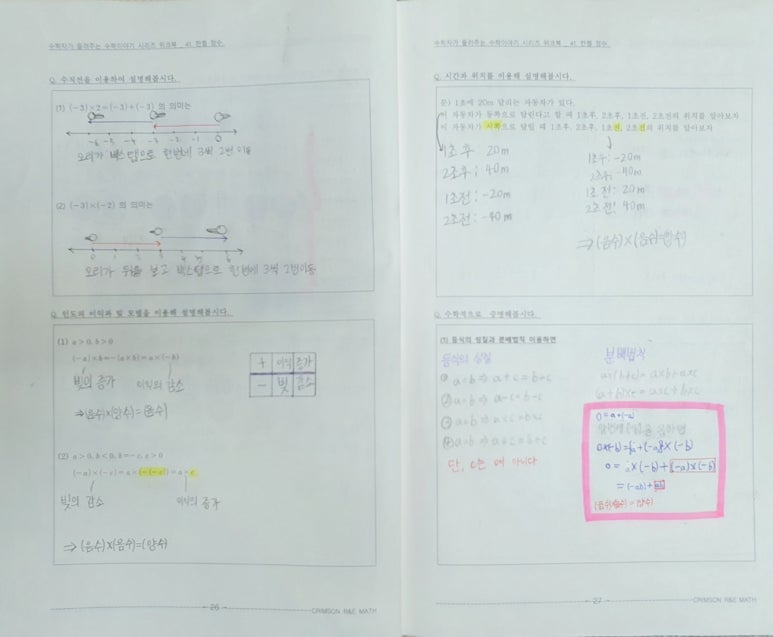 수학자가 들려주는 수학이야기 시리즈 워크북 _ 41. 한켈 정수.
Q. 수직선을 이용하여 설명해봅시다.
(1) (-3)×2=(-3)+(-3) 의 의미는
-6 -5 -4 -3 -2 -1 0
오리가 백스텝으로 한번에 3씩 2번 이동
(2) (-3)×(-2) 의 의미는
0 1 2 3 4 5 6
오리가 뒤를 보고 백스텝으로 한번에 3씩 2번이동
Q. 인도의 이익과 빚 모델을 이용해 설명해봅시다.
(1) a>0, b>0
(-a)×b=-(a×b)=a×(-b)
빚의 증가 이익의 감소
⇒(음수)×(양수)=(음수)
+ 이익 증가
- 빚 감소
(2) a>0, b<0, b=-c, c>0
(-a)×(-c)=a×(-(-c))=a×c
빚의 감소 이익의 증가
⇒(음수)×(음수)=(양수)
- 26 -
CRIMSON R&E MATH
수학자가 들려주는 수학이야기 시리즈 워크북 _ 41. 한켈 정수.
Q. 시간과 위치를 이용해 설명해봅시다.
문) 1초에 20m 달리는 자동차가 있다.
이 자동차가 동쪽으로 달린다고 할 때 1초후, 2초후, 1초전, 2초전의 위치를 알아보자
이 자동차가 서쪽으로 달릴 때 1초후, 2초후, 1초전, 2초전의 위치를 알아보자
1초후: 20m
2초후: 40m
1초전: -20m
2초전: -40m
1초후: -20m
2초후: -40m
1초전: 20m
2초전: 40m
⇒(음수)×(음수)=(양수)
Q. 수학적으로 증명해봅시다.
(3) 등식의 성질과 분배법칙 이용하면
등식의 성질
① a=b ⇒ a+c=b+c
② a=b ⇒ a-c=b-c
③ a=b ⇒ a×c=b×c
④ a=b ⇒ a÷c=b÷c
단, c는 0이 아니다
분배법칙
a×(b+c)=a×b+a×c
(a+b)×c=a×c+b×c
0=a+(-a)
0×(-b)={a+(-a)}×(-b)
0= a×(-b)+(-a)×(-b)
=(-ab)+ab
(음수)×(음수)=(양수)
- 27 -
CRIMSON R&E MATH